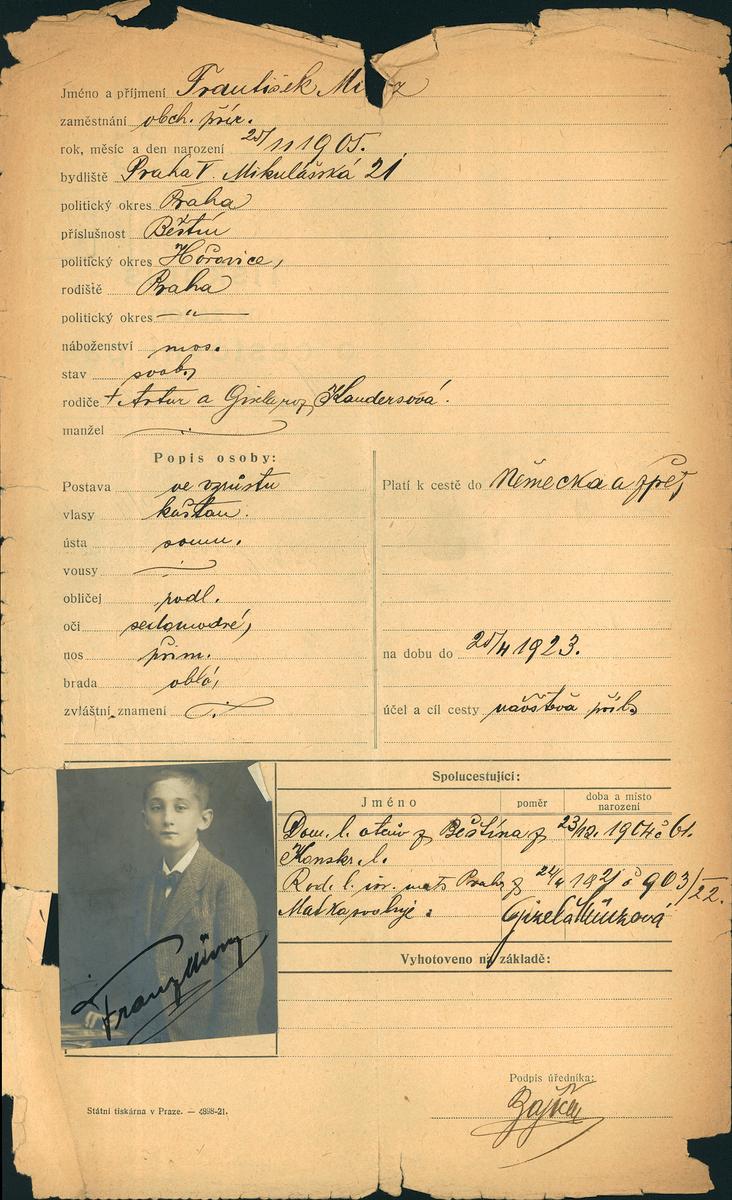 Jméno a příjmení František Mi z
zaměstnání obch. přír.
rok, měsíc a den narození 25/11 1905.
bydliště Praha V. Mikulášská 21
politický okres Praha
příslušnost Běštín
politický okres Hořovice,
rodiště Praha
politický okres — " —
náboženství mos.
stav svob.
rodiče + Artur a Gisela roz. Kaudersová.
manžel
Popis osoby:
Postava ve vzrůstu
vlasy kaštan.
ústa soum.
vousy —
obličej podl.
oči šedomodré,
nos přím.
brada oblá,
zvláštní znamení
Platí k cestě do Německa a zpět,
na dobu do 25/4 1923.
účel a cíl cesty návštěva příb.
Spolucestující:
Jméno poměr doba a místo narození
Dom. l. otcův z Běštína z 23/12. 1904 č 61.
Konskr. l.
Rod. l. isr. mats Prahy z 24/4 1921 č 903/22.
Matka svoluje: Gizela Münzová
Vyhotoveno na základě:
Franz Münz
Podpis úředníka:
Státní tiskárna v Praze. — 4898-21.